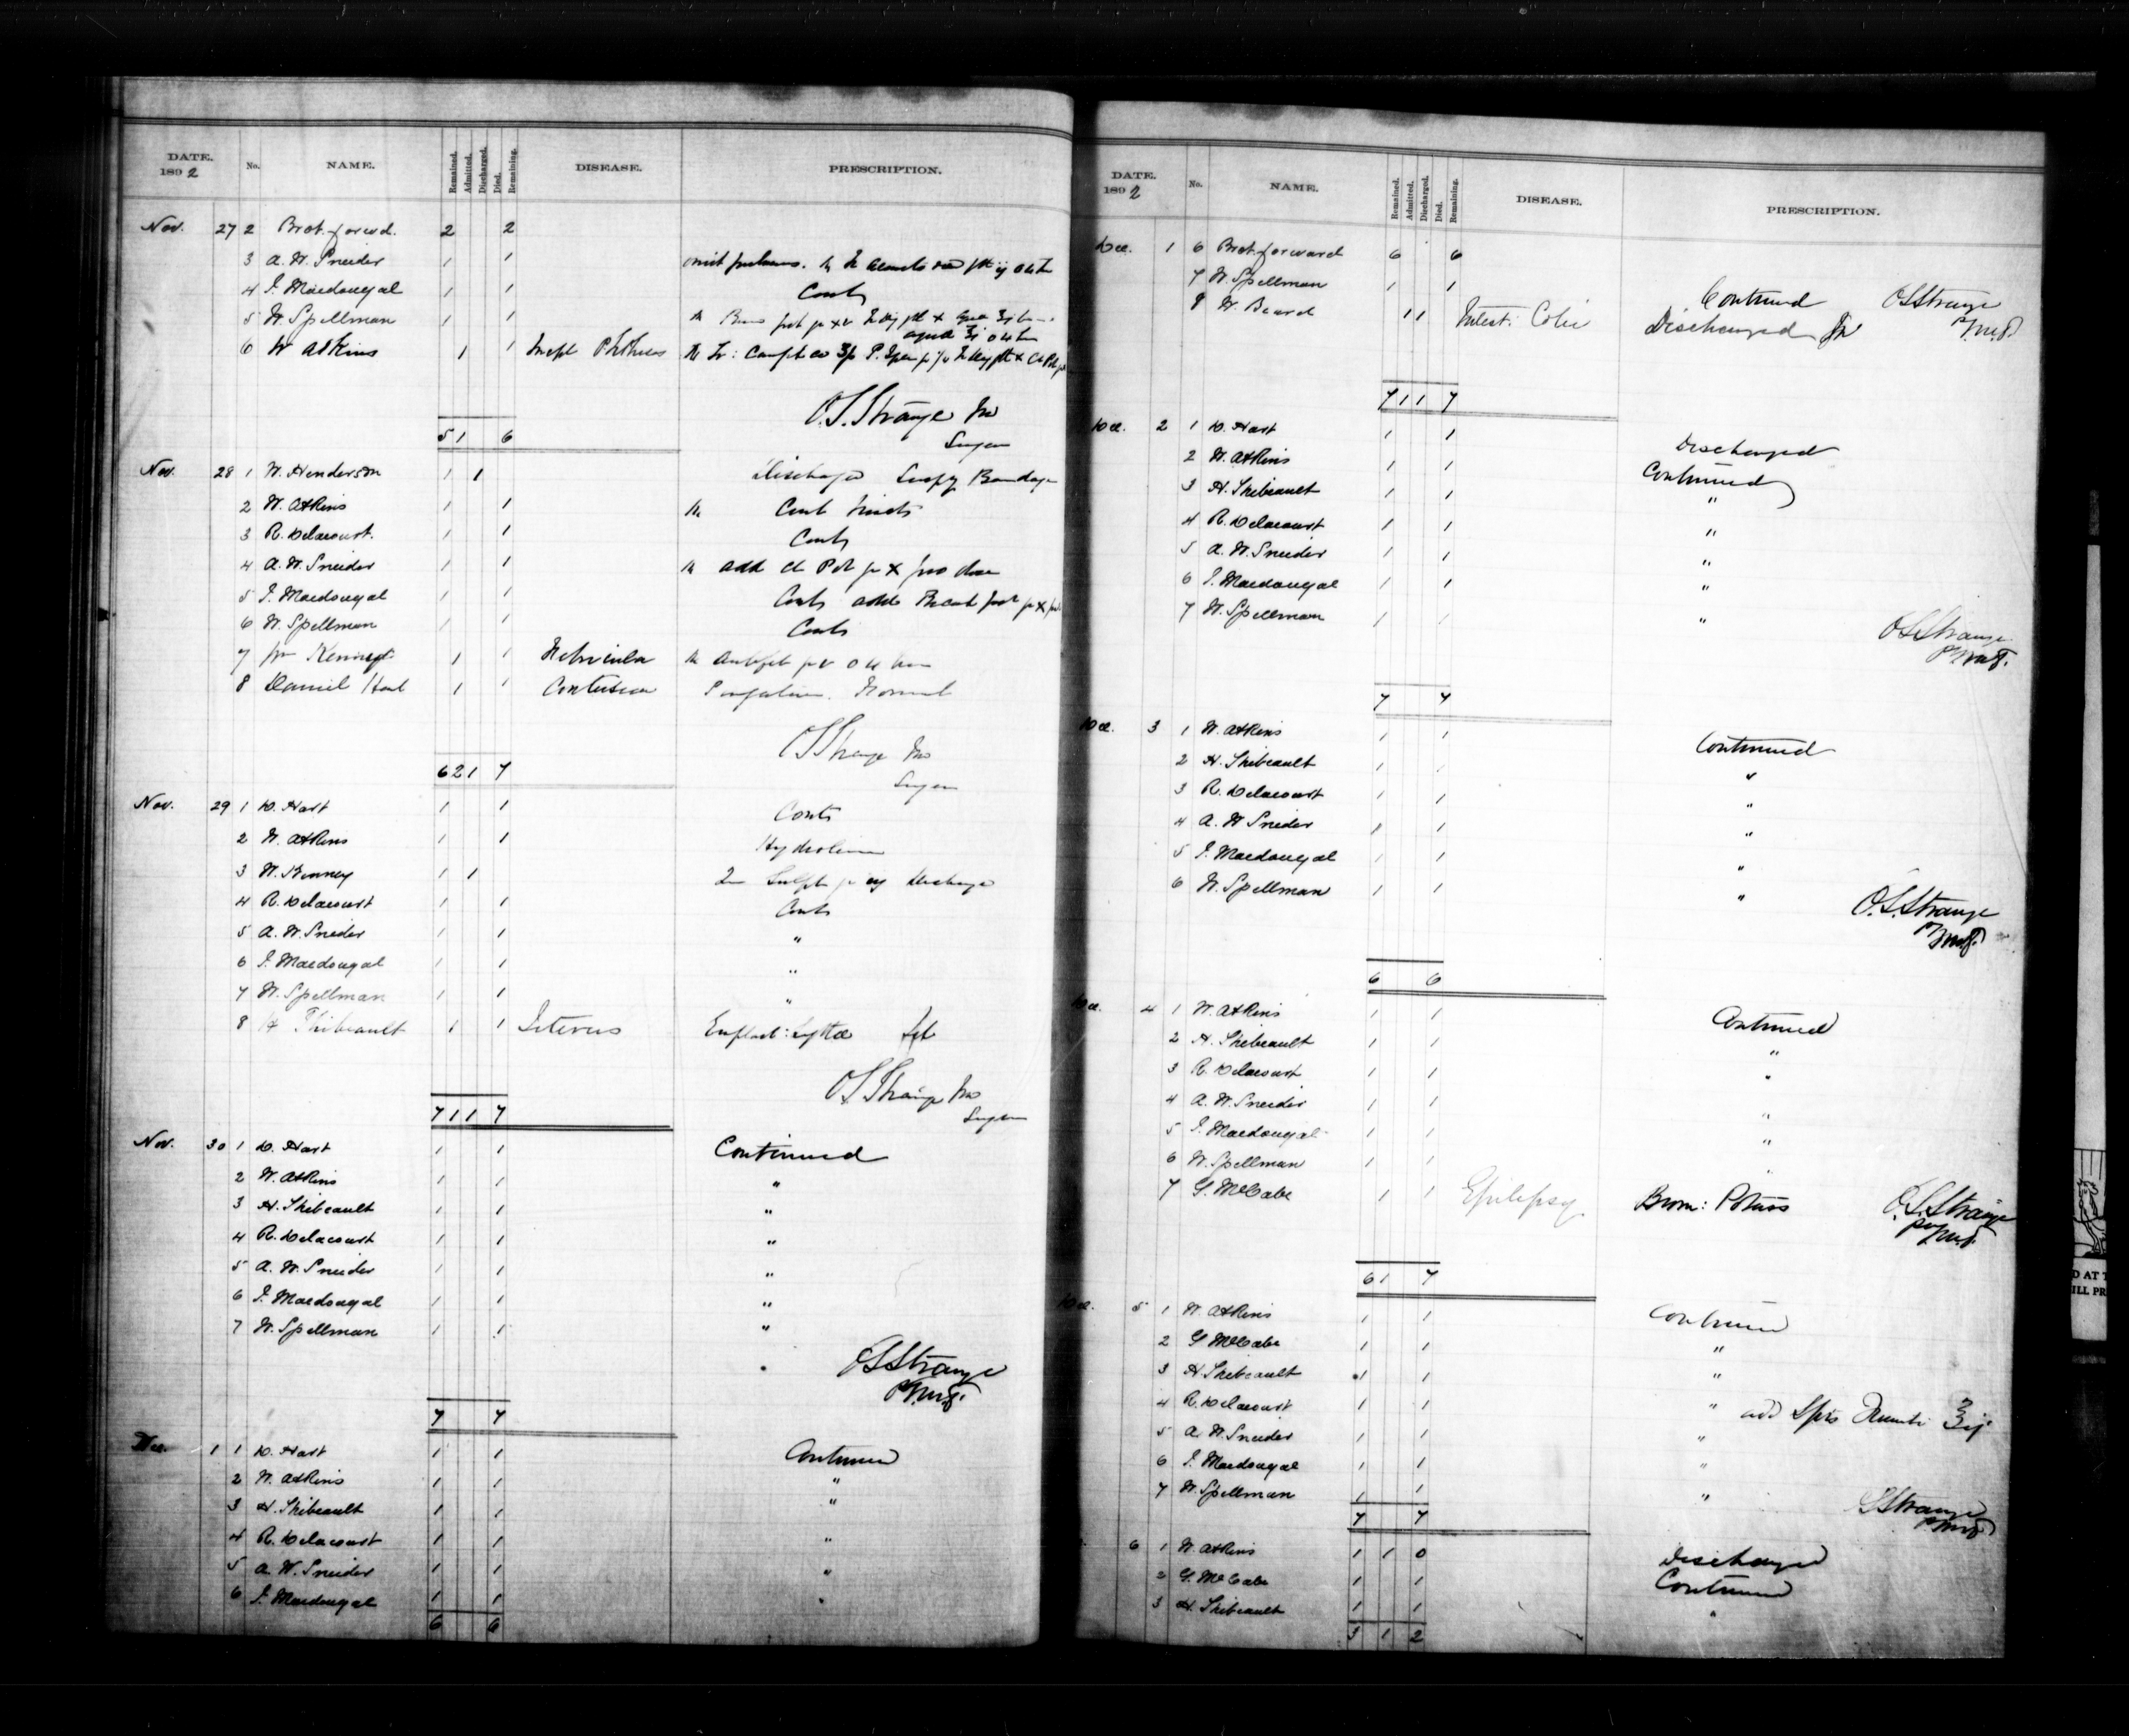 DATE. 1892 No. NAME. Remained. Admitted. Discharged. Died. Remaining. DISEASE. PRESCRIPTION.
Nov. 27 2 Brot. forwd. 2 2
3 A. W. Sneider 1 1
4 J. Macdougal 1 1 Conts
5 W. Spellman 1 1
6 W Atkins 1 1
O.S. Strange MD
Surgeon
5 1 6
Nov. 28 1 W. Henderson 1 1 Discharged Bandage
2 W. Atkins 1 1 Cont
3 R. Delacourt. 1 1 Conts
4 A. W. Sneider 1 1 add
5 J. Macdougal 1 1 Conts add
6 W. Spellman 1 1 Conts
7 1 1
8 Daniel Hart 1 1 Contusion
OS Strange MD
Surgeon
6 2 1 7
Nov. 29 1 D. Hart 1 1 Conts
2 W. Atkins 1 1
3 W. Kenney 1 1 Sulph Discharge
4 R. Delacourt 1 1 Conts
5 A. W. Sneider 1 1 "
6 J. Macdougal 1 1 "
7 W. Spellman 1 1 "
8 H Thibeault 1 1 Icterus Emplast: Lyttae
OS Strange MD
Surgeon
7 1 1 7
Nov. 30 1 D. Hart 1 1 Continued
2 W. Atkins 1 1 "
3 H. Thibeault 1 1 "
4 R. Delacourt 1 1 "
5 A. W. Sneider 1 1 "
6 J. Macdougal 1 1 "
7 W. Spellman 1 1 "
OS Strange
7 7
Dec. 1 1 D. Hart 1 1 Continued
2 W. Atkins 1 1 "
3 H. Thibeault 1 1 "
4 R. Delacourt 1 1 "
5 A. W. Sneider 1 1 "
6 J. Macdougal 1 1 "
6 6
DATE. 1892 No. NAME. Remained. Admitted. Discharged. Died. Remaining. DISEASE. PRESCRIPTION.
Dec. 1 6 Brot. forward 6 6
7 W. Spellman 1 1 Continued OS Strange
8 W. Beard 1 1 Intest: Colic Discharged
7 1 1 7
Dec. 2 1 D. Hart 1 1 Discharged
2 W. Atkins 1 1 Continued
3 H. Thibeault 1 1 "
4 R. Delacourt 1 1 "
5 A. W. Sneider 1 1 "
6 J. Macdougal 1 1 "
7 W. Spellman 1 1 "
OS Strange
7 7
Dec. 3 1 W. Atkins 1 1 Continued
2 H. Thibeault 1 1 "
3 R. Delacourt 1 1 "
4 A. W Sneider 1 1 "
5 J. Macdougal 1 1 "
6 W. Spellman 1 1 "
O.S. Strange
6 6
Dec. 4 1 W. Atkins 1 1 Continued
2 H. Thibeault 1 1 "
3 R. Delacourt 1 1 "
4 A. W. Sneider 1 1 "
5 J. Macdougal 1 1 "
6 W. Spellman 1 1 "
7 G. McCabe 1 1 Epilepsy Brom: Potass O.S. Strange
6 1 7
Dec. 5 1 W. Atkins 1 1 Continued
2 G. McCabe 1 1 "
3 H. Thibeault 1 1 "
4 R. Delacourt 1 1 " add
5 A. W. Sneider 1 1 "
6 J. Macdougal 1 1 "
7 W. Spellman 1 1 "
OS Strange
7 7
6 1 W. Atkins 1 1 0 Discharged
2 G. McCabe 1 1 Continued
3 H. Thibeault 1 1 "
3 1 2